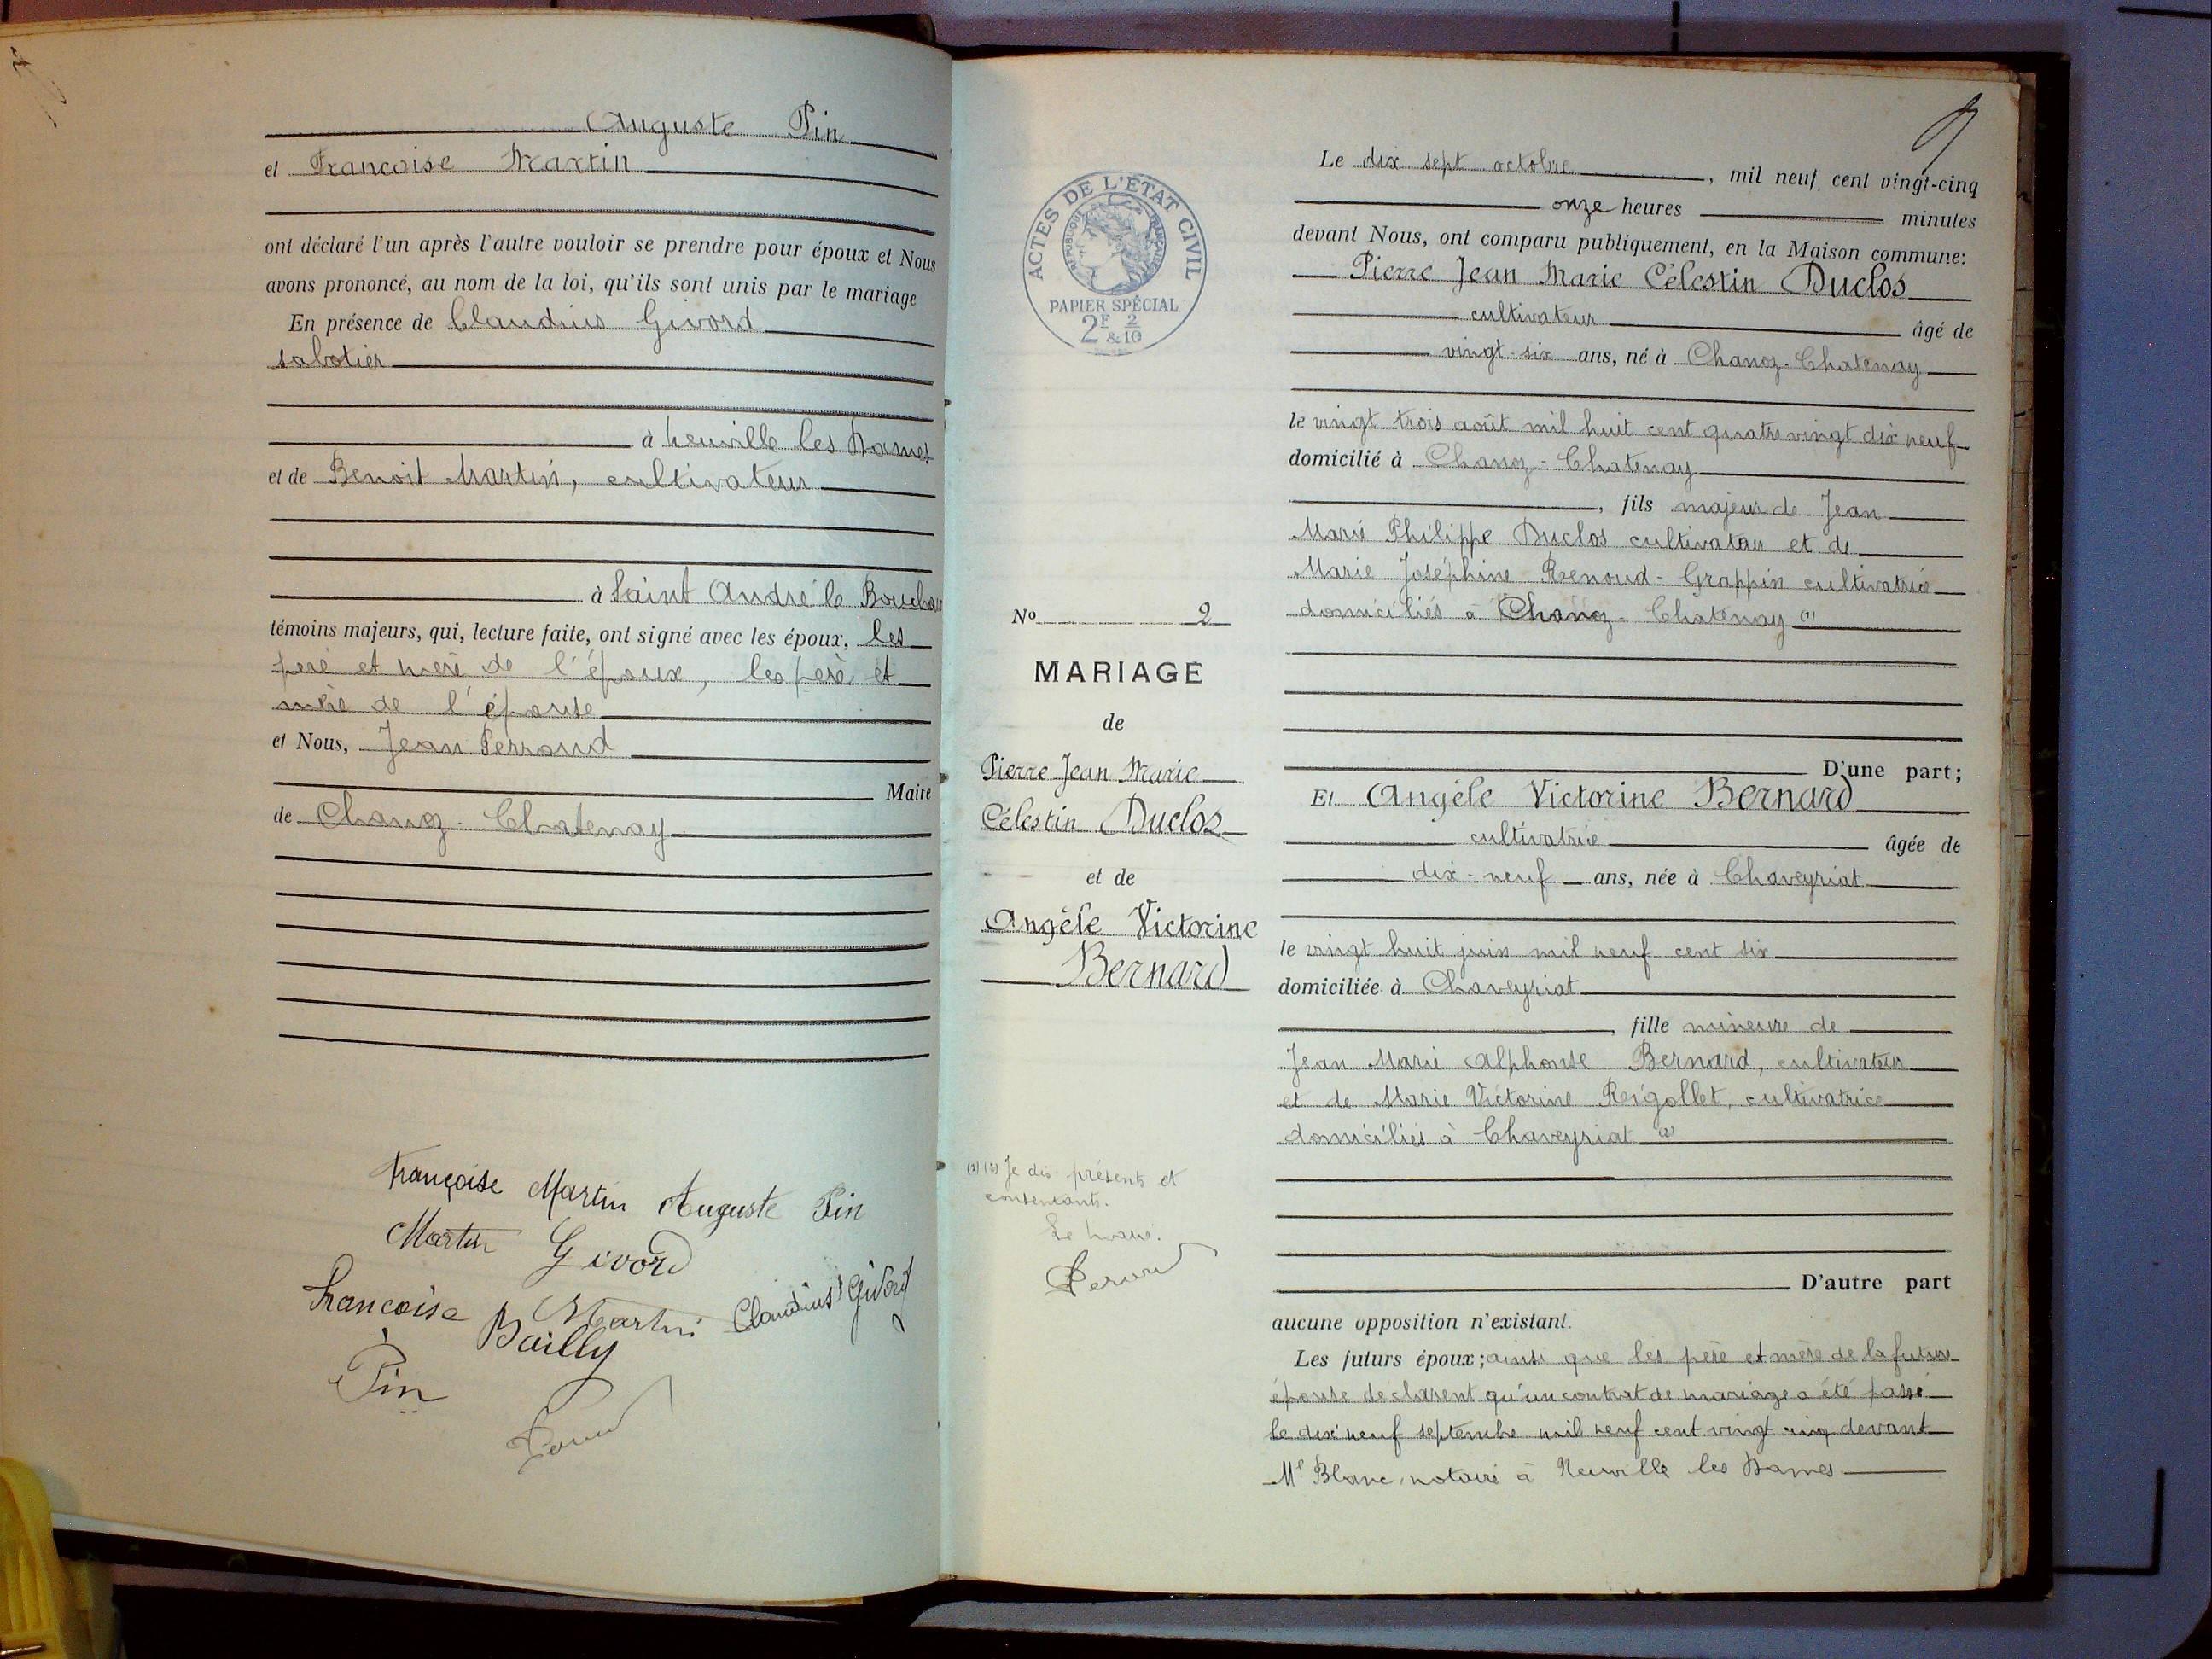 Auguste Pin
et Francoise Martin
ont déclaré l'un après l'autre vouloir se prendre pour époux et Nous
avons prononcé, au nom de la loi, qu'ils sont unis par le mariage
En présence de Claudius Givord
sabotier
à Neuville les Dames
et de Benoit Martin, cultivateur
à Saint André le Bouchoux
témoins majeurs, qui, lecture faite, ont signé avec les époux, les
père et mère de l'époux, les père et
mère de l'épouse
et Nous, Jean Perraud
Maire
de Chanoz-Chatenay
Françoise Martin Auguste Pin
Martin Givord
Francoise Martin Claudius Givord
Bailly
Pin
ACTES DE L'ÉTAT CIVIL
RÉPUBLIQUE FRANÇAISE
PAPIER SPÉCIAL
2F 2
& 10
No 2
MARIAGE
de
Pierre Jean Marie
Célestin Duclos
et de
Angèle Victorine
Bernard
(1) (2) Je dis présents et
consentants.
Le maire.
Le dix sept octobre, mil neuf cent vingt-cinq
onze heures minutes
devant Nous, ont comparu publiquement, en la Maison commune:
Pierre Jean Marie Célestin Duclos
cultivateur âgé de
vingt-six ans, né à Chanoz-Chatenay
le vingt trois août mil huit cent quatre vingt dix neuf
domicilié à Chanoz-Chatenay
, fils majeur de Jean
Marie Philippe Duclos cultivateur et de
Marie Joséphine Renoud-Grappin cultivatrice
domiciliés à Chanoz-Chatenay (1)
D'une part;
Et Angèle Victorine Bernard
cultivatrice âgée de
dix-neuf ans, née à Chaveyriat
le vingt huit juin mil neuf cent six
domiciliée à Chaveyriat
, fille mineure de
Jean Marie Alphonse Bernard, cultivateur
et de Marie Victorine Reigollet, cultivatrice
domiciliés à Chaveyriat (2)
D'autre part
aucune opposition n'existant.
Les futurs époux; ainsi que les père et mère de la future
épouse déclarent qu'un contrat de mariage a été passé
le dix neuf septembre mil neuf cent vingt cinq devant
Me Blanc, notaire à Neuville les Dames